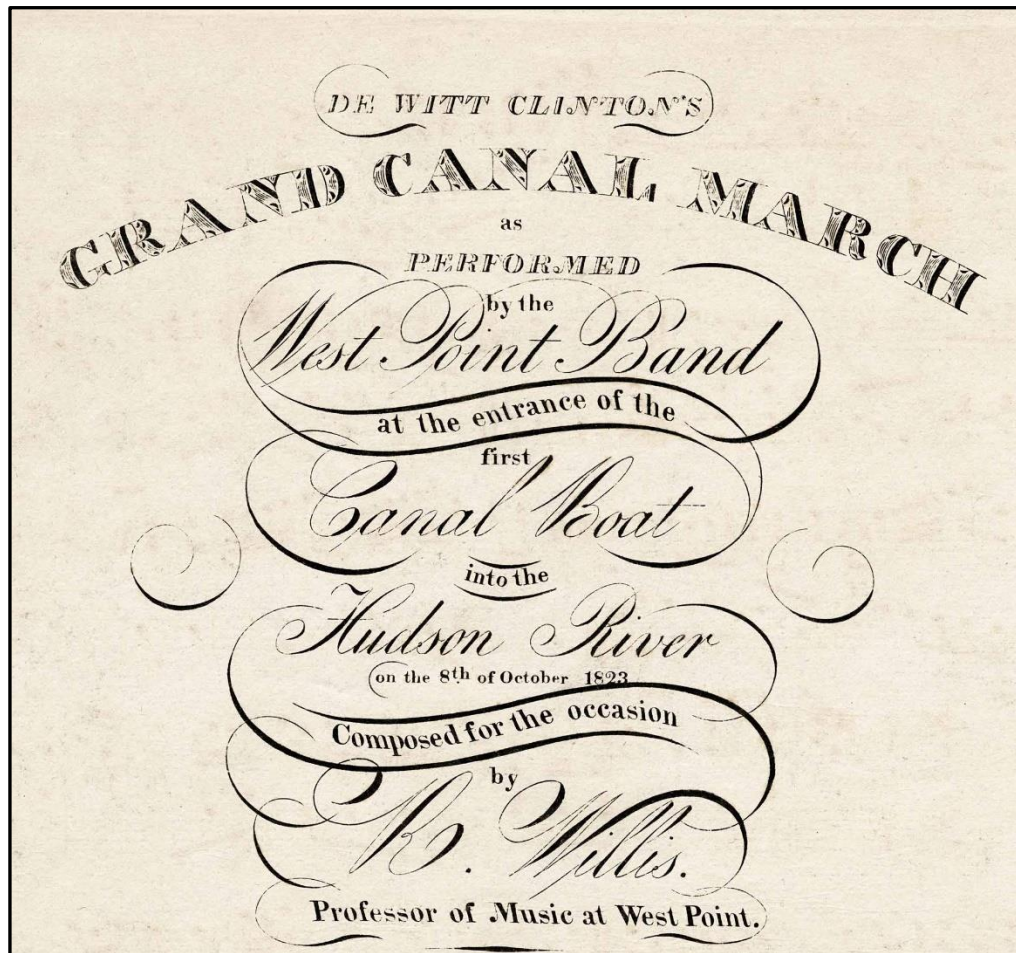 DE WITT CLINTON'S
GRAND CANAL MARCH
as
PERFORMED
by the
West Point Band
at the entrance of the
first
Canal Boat
into the
Hudson River
on the 8th of October 1823
Composed for the occasion
by
R. Willis.
Professor of Music at West Point.